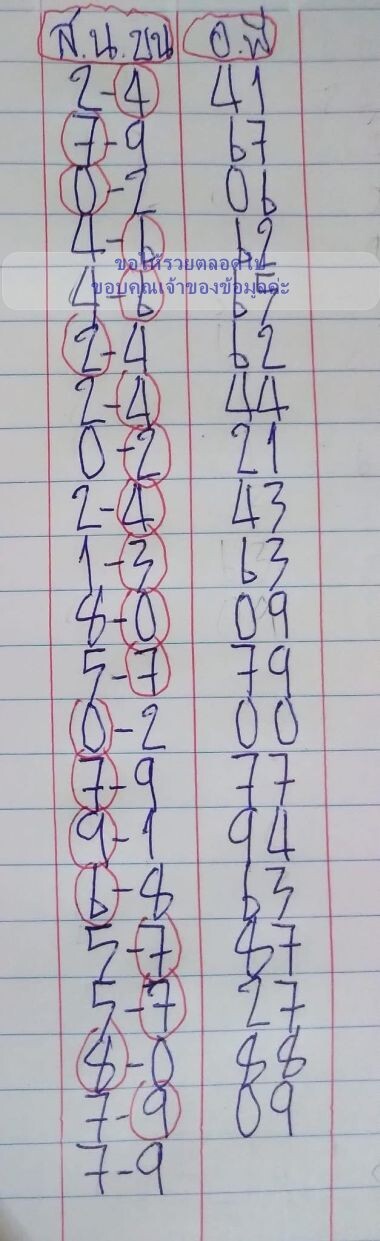 ส.น.ชน อ.พี
2-4 41
7-9 67
0-2 06
4-6 62
ขอให้รวยตลอดไป
ขอบคุณเจ้าของข้อมูลค่ะ
4-6 67
2-4 62
2-4 44
0-2 21
2-4 43
1-3 63
8-0 09
5-7 79
0-2 00
7-9 77
9-1 94
6-8 63
5-7 87
5-7 27
8-0 88
7-9 09
7-9